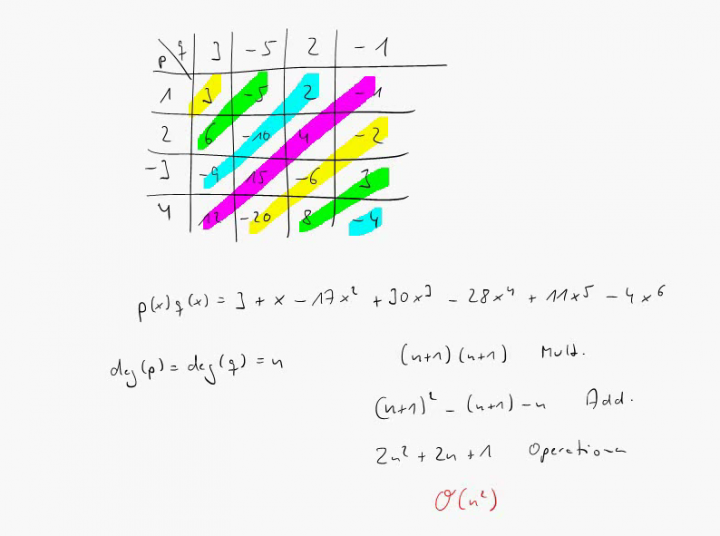 p q 3 -5 2 -1
1 3 -5 2 -1
2 6 -10 4 -2
-3 -9 15 -6 3
4 12 -20 8 -4
p(x)q(x) = 3 + x - 17x² + 30x³ - 28x⁴ + 11x⁵ - 4x⁶
deg(p) = deg(q) = n
(n+1)(n+1) Mult.
(n+1)² - (n+1) - n Add.
2n² + 2n + 1 Operationen
O(n²)